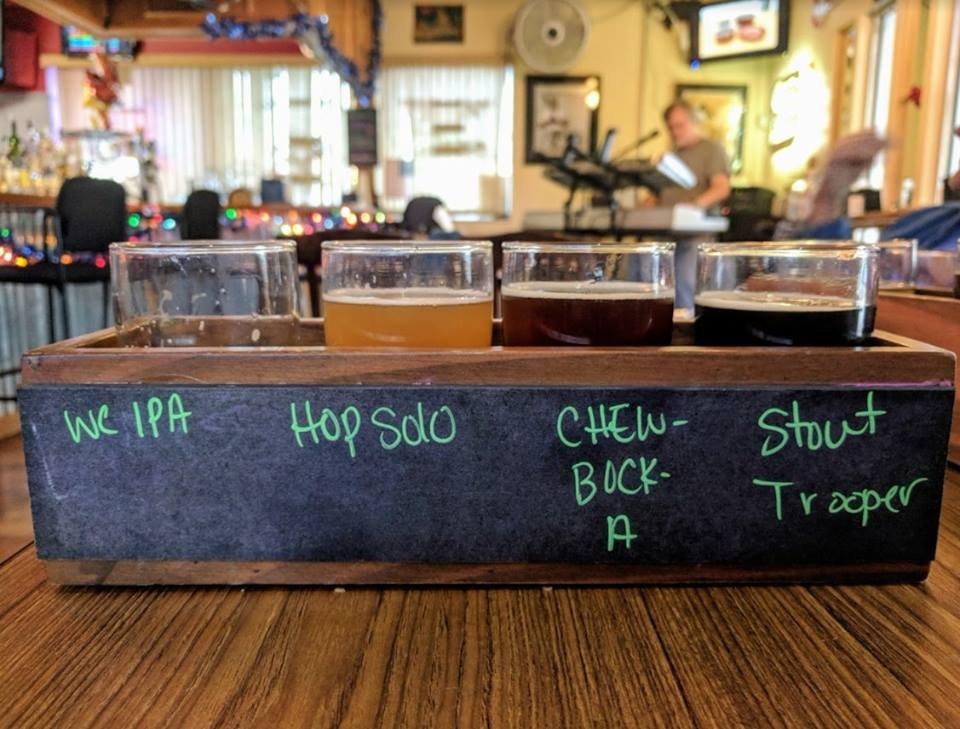 WC IPA
Hop Solo
CHEW-
BOCK-
A
Stout
Trooper